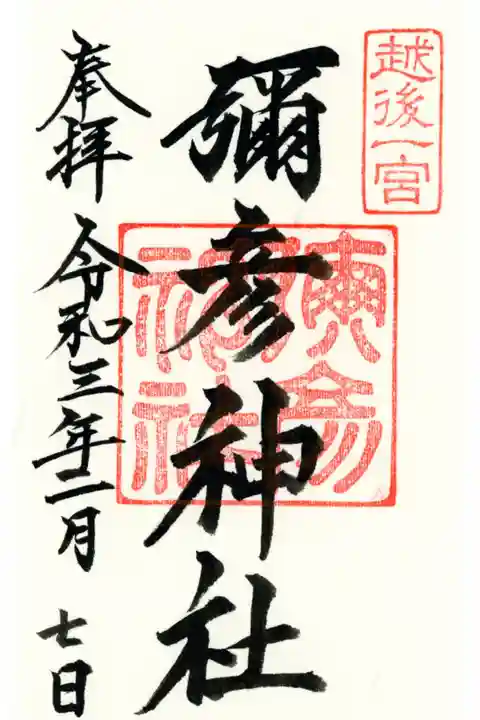 越後一宮
彌彦神社
奉拝 令和三年二月 七日